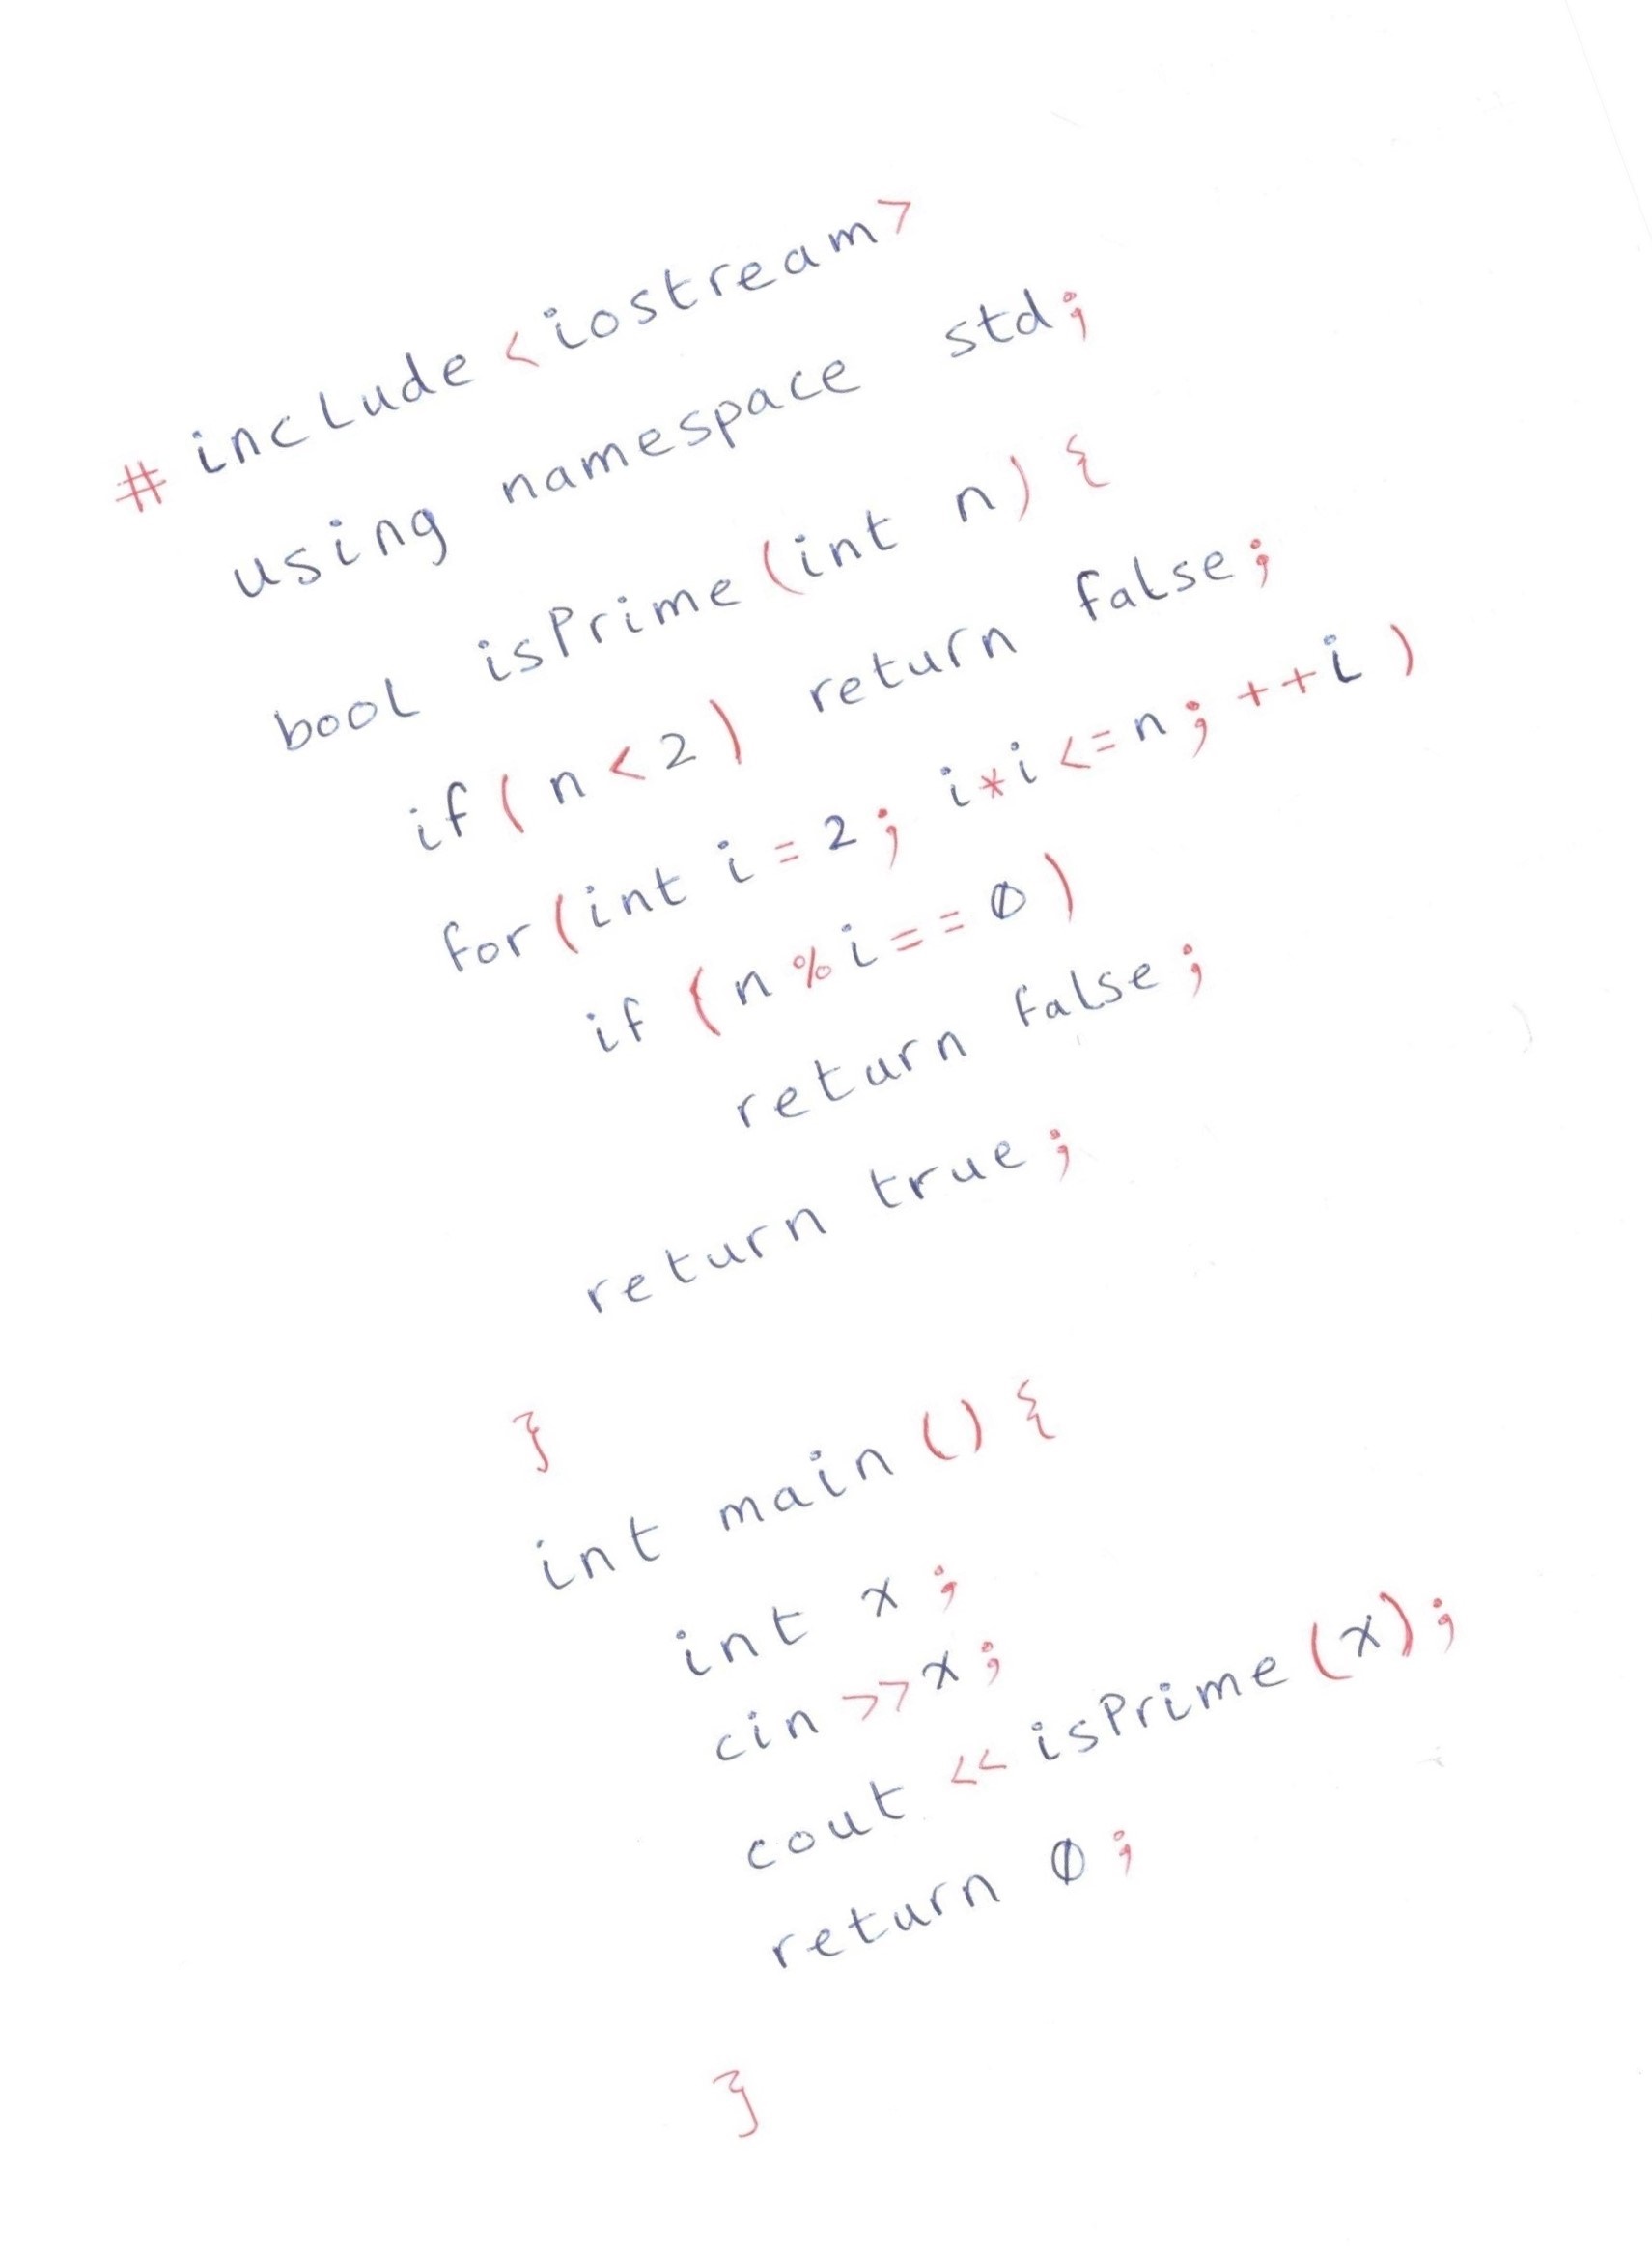 #include <iostream>
using namespace std;
bool isPrime(int n) {
if(n<2) return false;
for(int i=2; i*i<=n; ++i)
if (n%i==0)
return false;
return true;
}
int main() {
int x;
cin >>x;
cout << isPrime(x);
return 0;
}